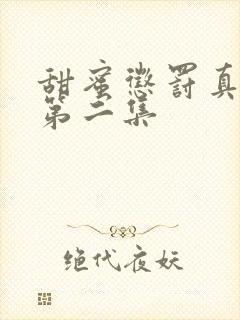 甜蜜惩罚真
第二集
绝代夜妖